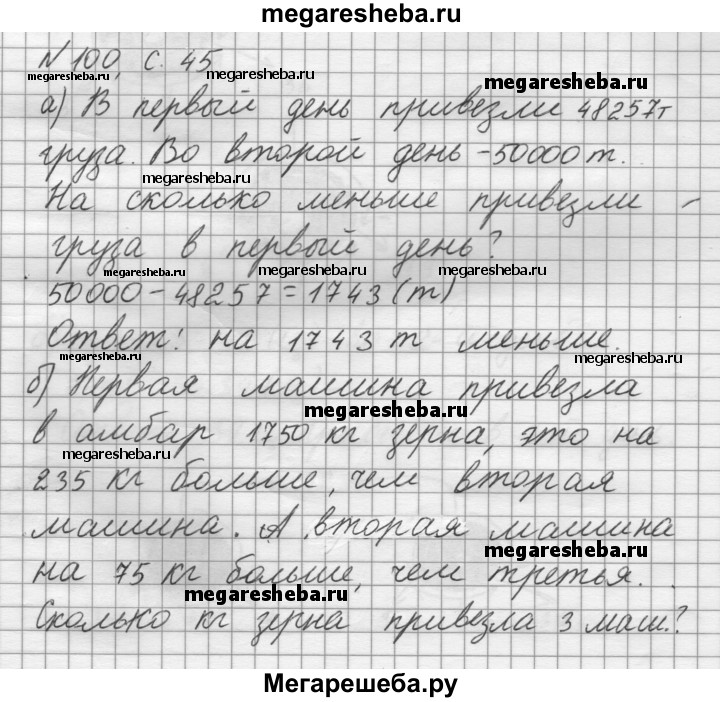 megaresheba.ru
№ 100, с. 45
megaresheba.ru megaresheba.ru megaresheba.ru
а) В первый день привезли 48257т
груза. Во второй день - 50000 т.
megaresheba.ru
На сколько меньше привезли -
груза в первый день?
megaresheba.ru megaresheba.ru megaresheba.ru
50000 - 48257 = 1743 (т)
Ответ: на 1743 т меньше.
megaresheba.ru megaresheba.ru
б) Первая машина привезла
megaresheba.ru
в амбар 1750 кг зерна, это на
megaresheba.ru
235 кг больше, чем вторая
машина. А вторая машина
megaresheba.ru
на 75 кг больше, чем третья.
megaresheba.ru
Сколько кг зерна привезла 3 маш.?
Мегарешеба.ру